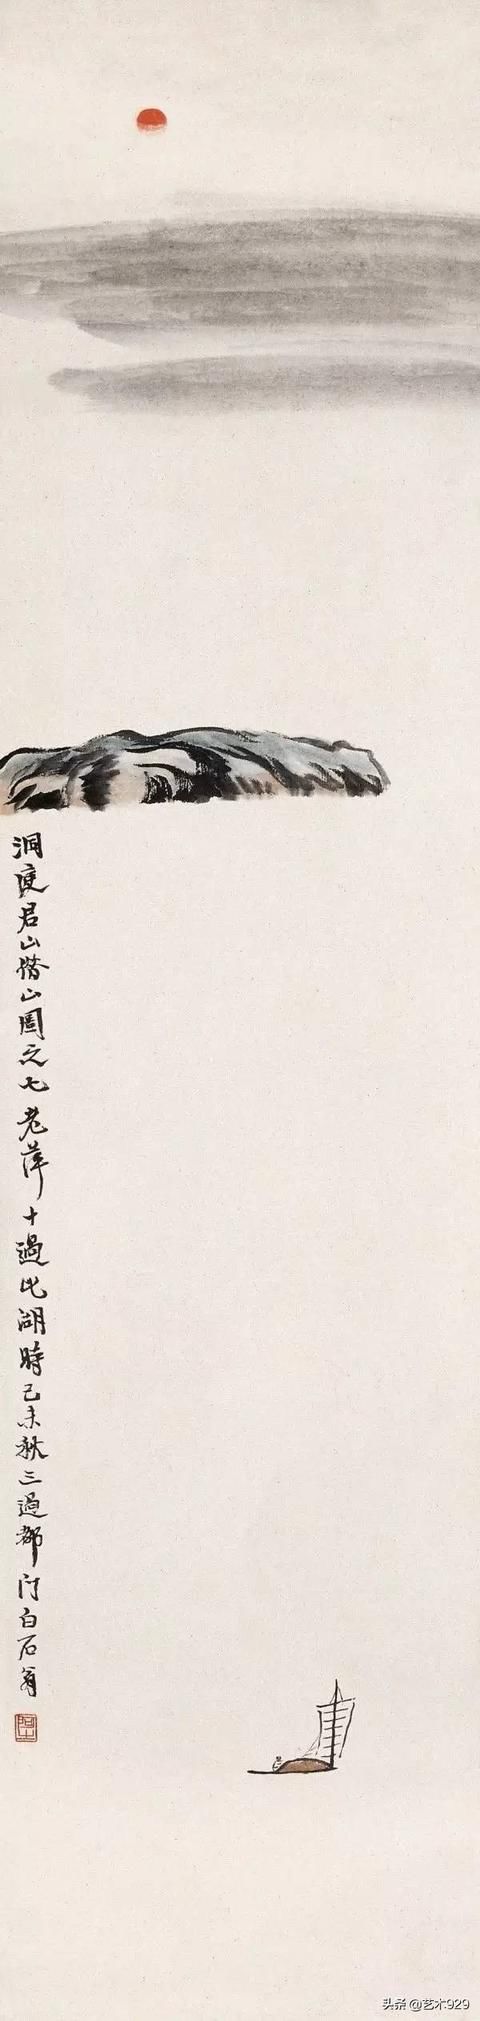 洞庭君山借山圖之七老萍十過此湖時己未秋三過都門白石翁
阿芝
头条 @艺术929